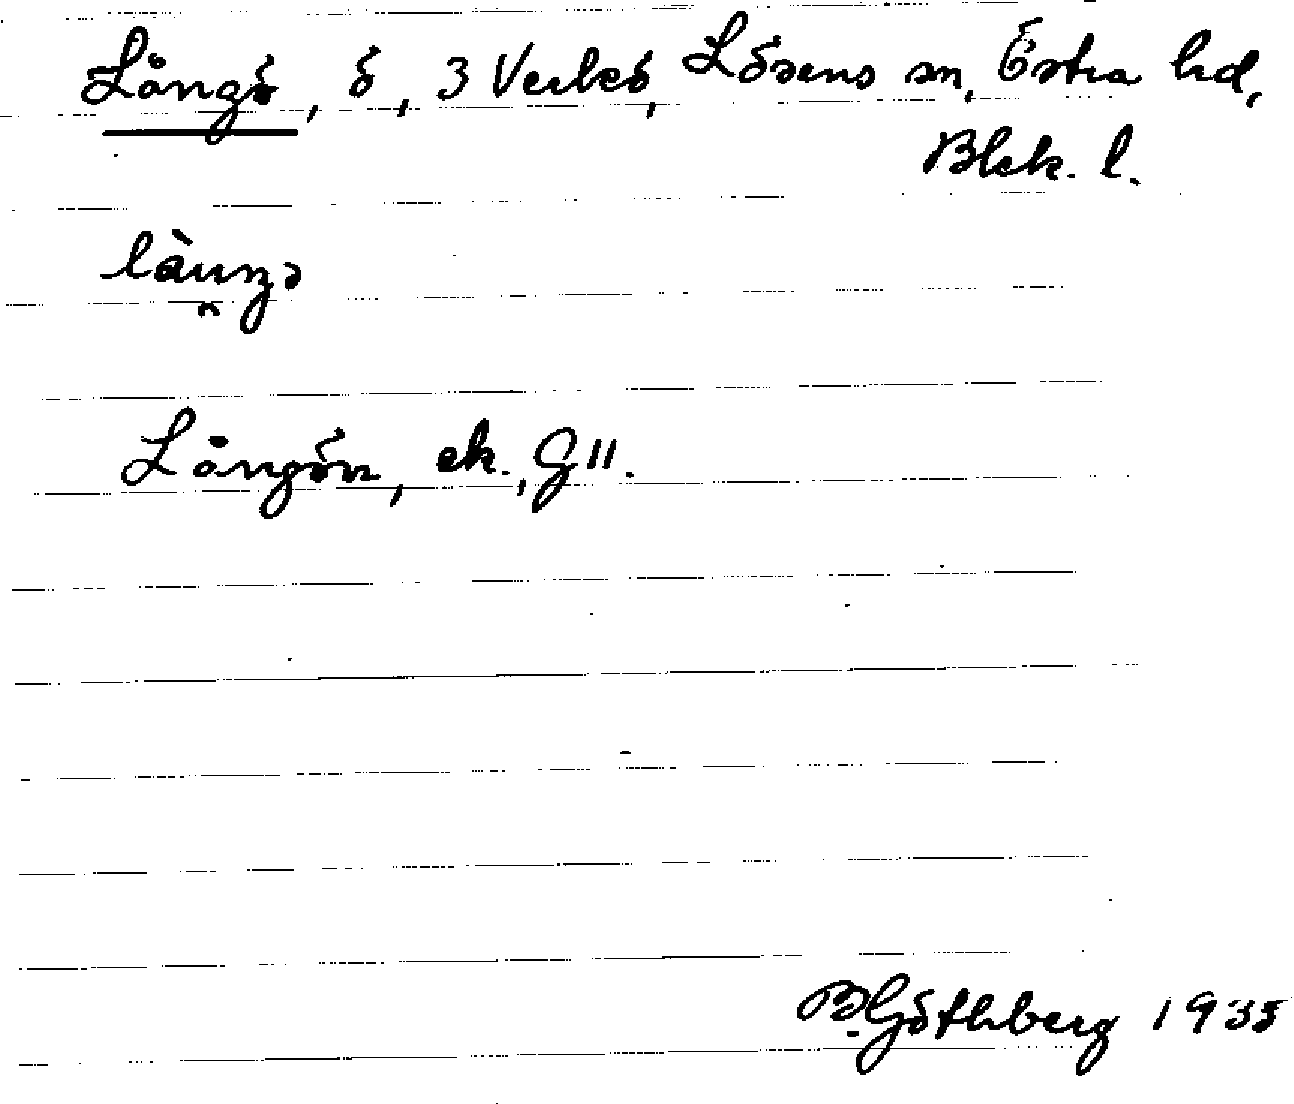 Långö, ö, 3 Verkö, Lösens sn, Östra hd,
Blek. l.
Långön, ek., G 11.
B. Göthberg 1935